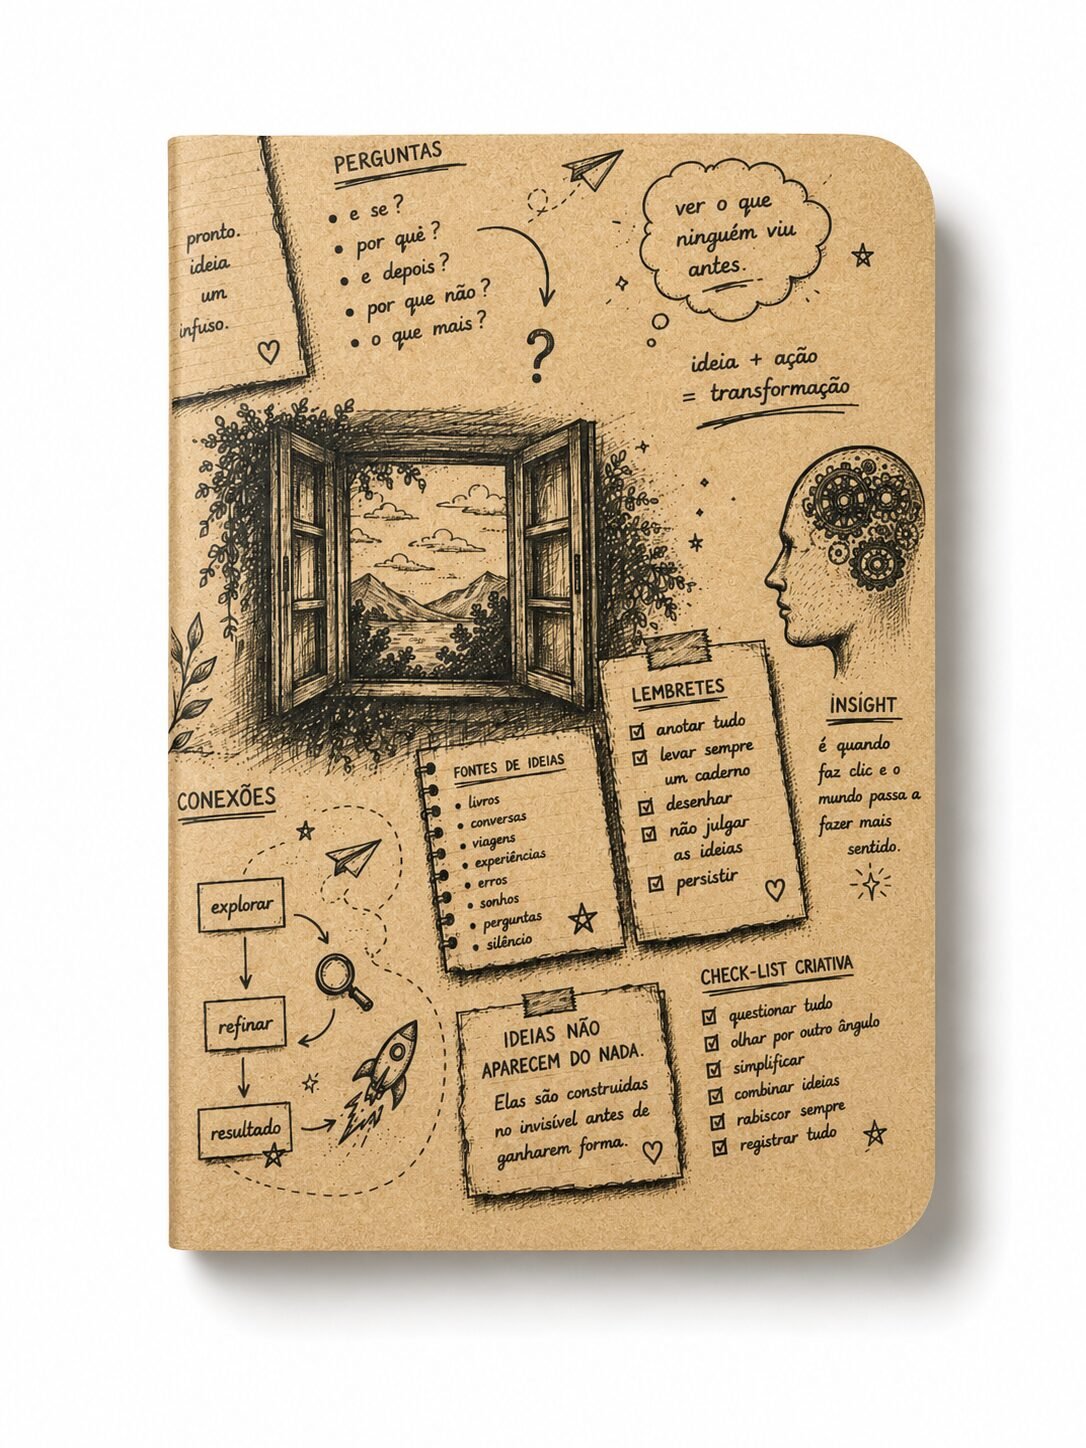 pronto.
ideia
um
infuso.
PERGUNTAS
• e se?
• por quê?
• e depois?
• por que não?
• o que mais?
?
ver o que
ninguém viu
antes.
ideia + ação
= transformação
INSIGHT
é quando
faz clic e o
mundo passa a
fazer mais
sentido.
LEMBRETES
☑ anotar tudo
☑ levar sempre
um caderno
☑ desenhar
☑ não julgar
as ideias
☑ persistir
FONTES DE IDEIAS
• livros
• conversas
• viagens
• experiências
• erros
• sonhos
• perguntas
• silêncio
CONEXÕES
explorar
refinar
resultado
IDEIAS NÃO
APARECEM DO NADA.
Elas são construidas
no invisível antes de
ganharem forma.
CHECK-LIST CRIATIVA
☑ questionar tudo
☑ olhar por outro ângulo
☑ simplificar
☑ combinar ideias
☑ rabiscar sempre
☑ registrar tudo